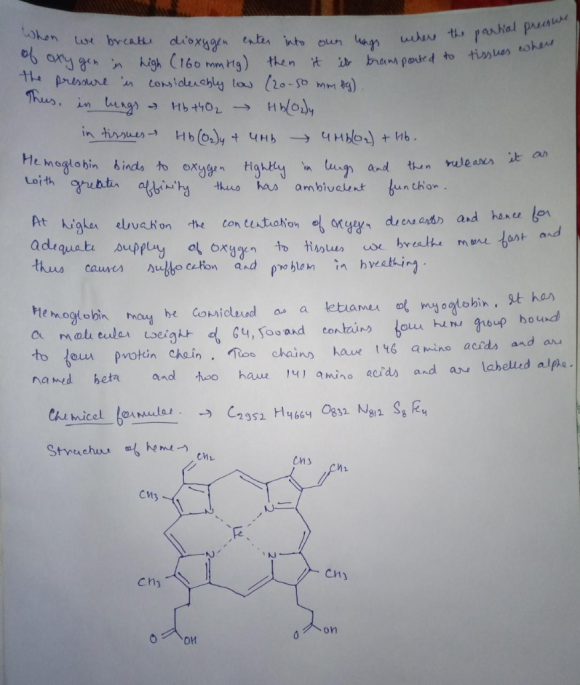 When we breathe dioxygen enter into our lungs where the partial pressure
of oxygen is high (160 mmHg) then it is transported to tissues where
the pressure is considerably low (20-50 mmHg)
Thus, in lungs → Hb+4O₂ → Hb(O₂)₄
in tissues → Hb(O₂)₄ + 4Mb → 4Mb(O₂) + Hb.
Hemoglobin binds to oxygen tightly in lungs and then releases it as
with greater affinity thus has ambivalent function.
At higher elevation the concentration of oxygen decreases and hence for
adequate supply of oxygen to tissues we breathe more fast and
thus causes suffocation and problem in breathing.
Hemoglobin may be considered as a tetramer of myoglobin. It has
a molecular weight of 64,500 and contains four heme group bound
to four protein chain. Two chains have 146 amino acids and are
named beta and two have 141 amino acids and are labelled alpha.
Chemical formula. → C₂₉₅₂ H₄₆₆₄ O₈₃₂ N₈₁₂ S₈ Fe₄
Structure of heme →
CH₂
CH₃
CH₂
CH₃
N
N
Fe
N
N
CH₃
CH₃
O
OH
O
OH